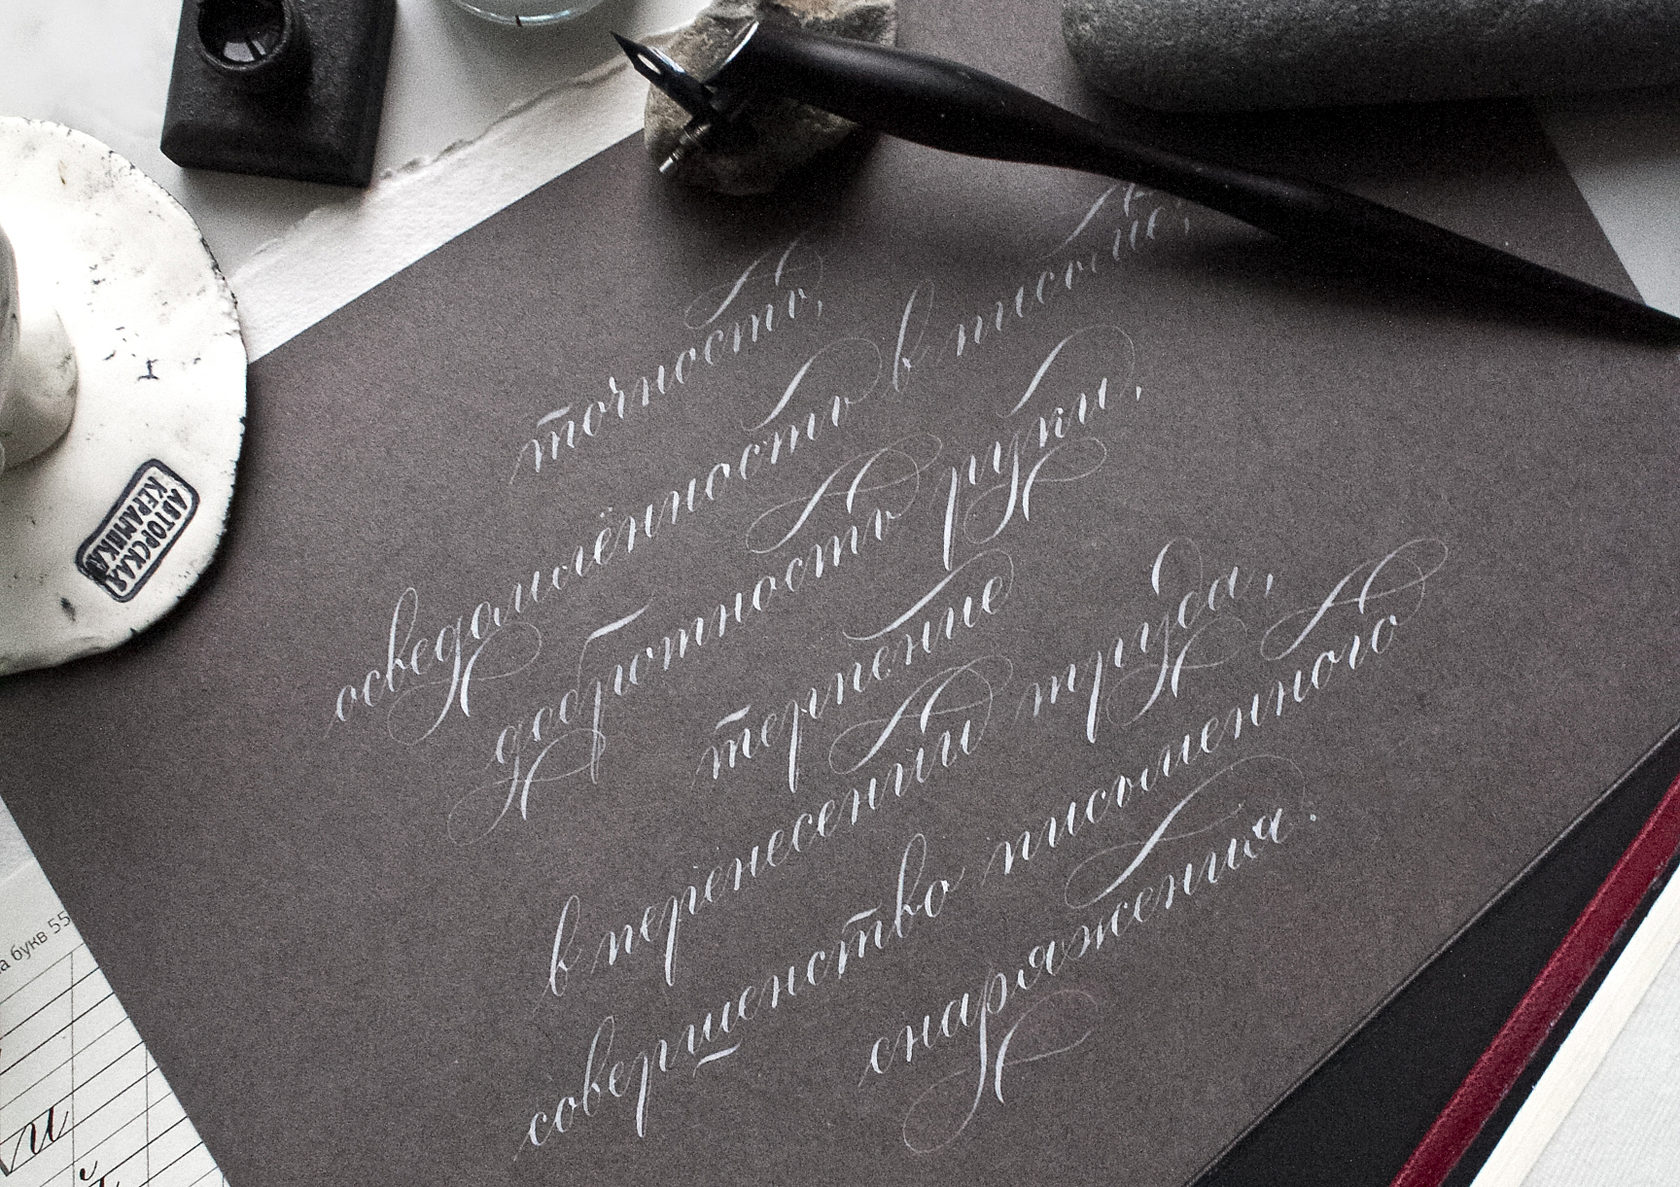 точность,
осведомлённость в письме,
добротность руки,
терпение
в перенесении труда,
совершенство письменного
снаряжения.
АВТОРСКАЯ
КЕРАМИКА
а букв 55
и
й